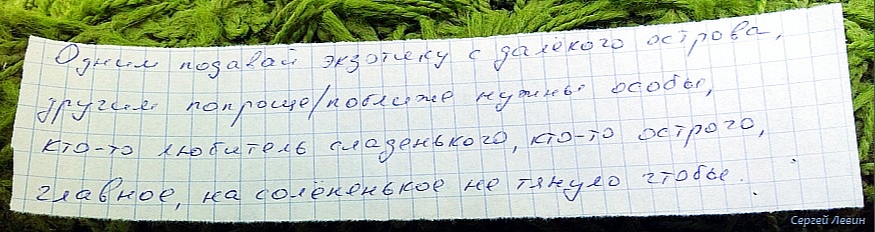 Одним подавай экзотику с далёкого острова,
другим попроще/поближе нужны особы,
кто-то любитель сладенького, кто-то острого,
главное, на солёненькое не тянуло чтобы.
Сергей Левин